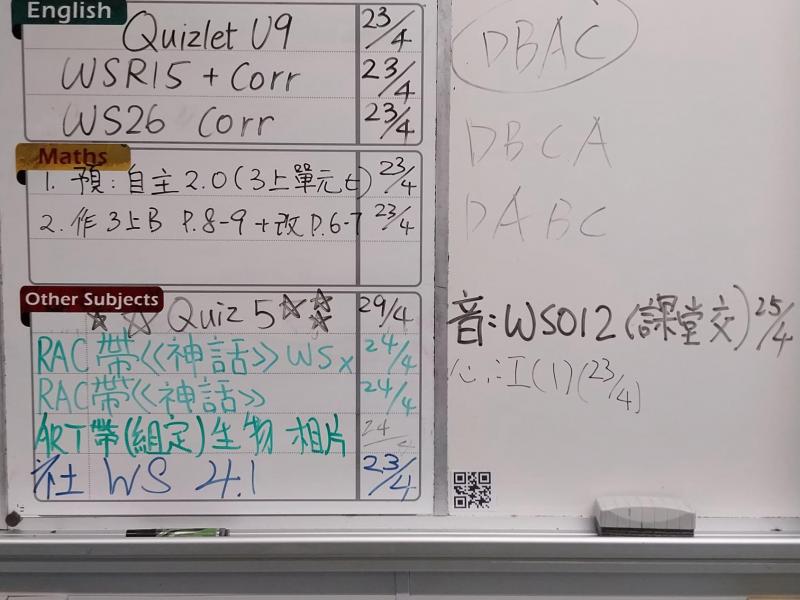 English
Quizlet U9 23/4
WSR15 + Corr 23/4
WS26 Corr 23/4
Maths
1. 預:自主2.0(3上單元七) 23/4
2. 作3上B P.8-9 + 改P.6-7 23/4
Other Subjects
Quiz 5 29/4
RAC 帶《神話》WS x 24/4
RAC帶《神話》 24/4
ART 帶(組定)生物 相片 24/4
社 WS 4.1 23/4
DBAC
DBCA
DABC
音:WS012(課堂交) 25/4
(1)(23/4)